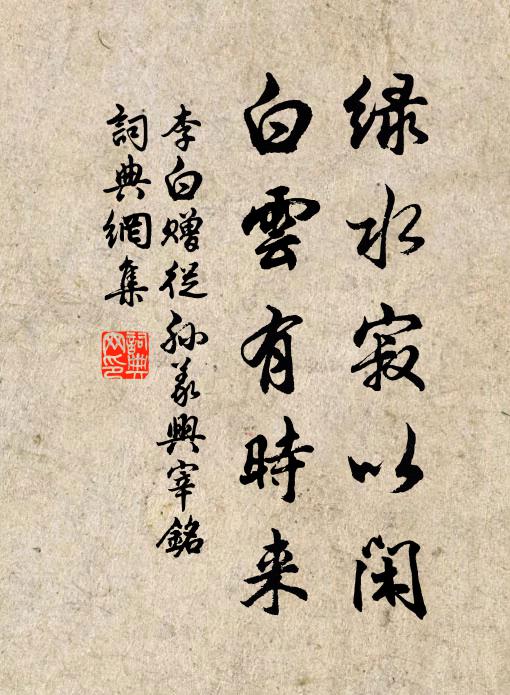 緑水寂以閑
白雲有時来
李白贈從孫義興宰銘
詞典網集
詞典
网印